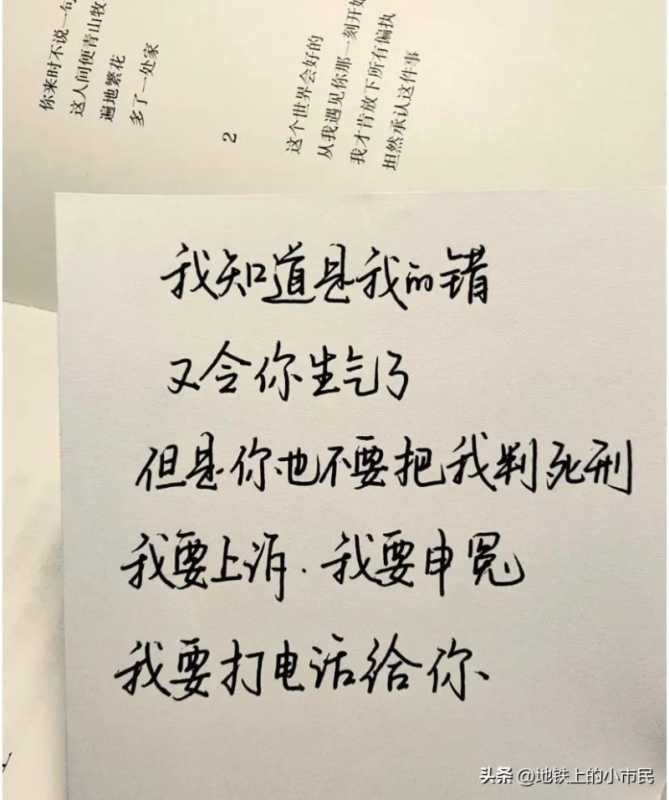 你来时不说一句
这人间便青山牧
遍地繁花
多了一处家
2
这个世界会好的
从我遇见你那一刻开始
我才肯放下所有偏执
坦然承认这件事
我知道是我的错
又令你生气了
但是你也不要把我判死刑
我要上诉.我要申冤
我要打电话给你、
头条 @地铁上的小市民